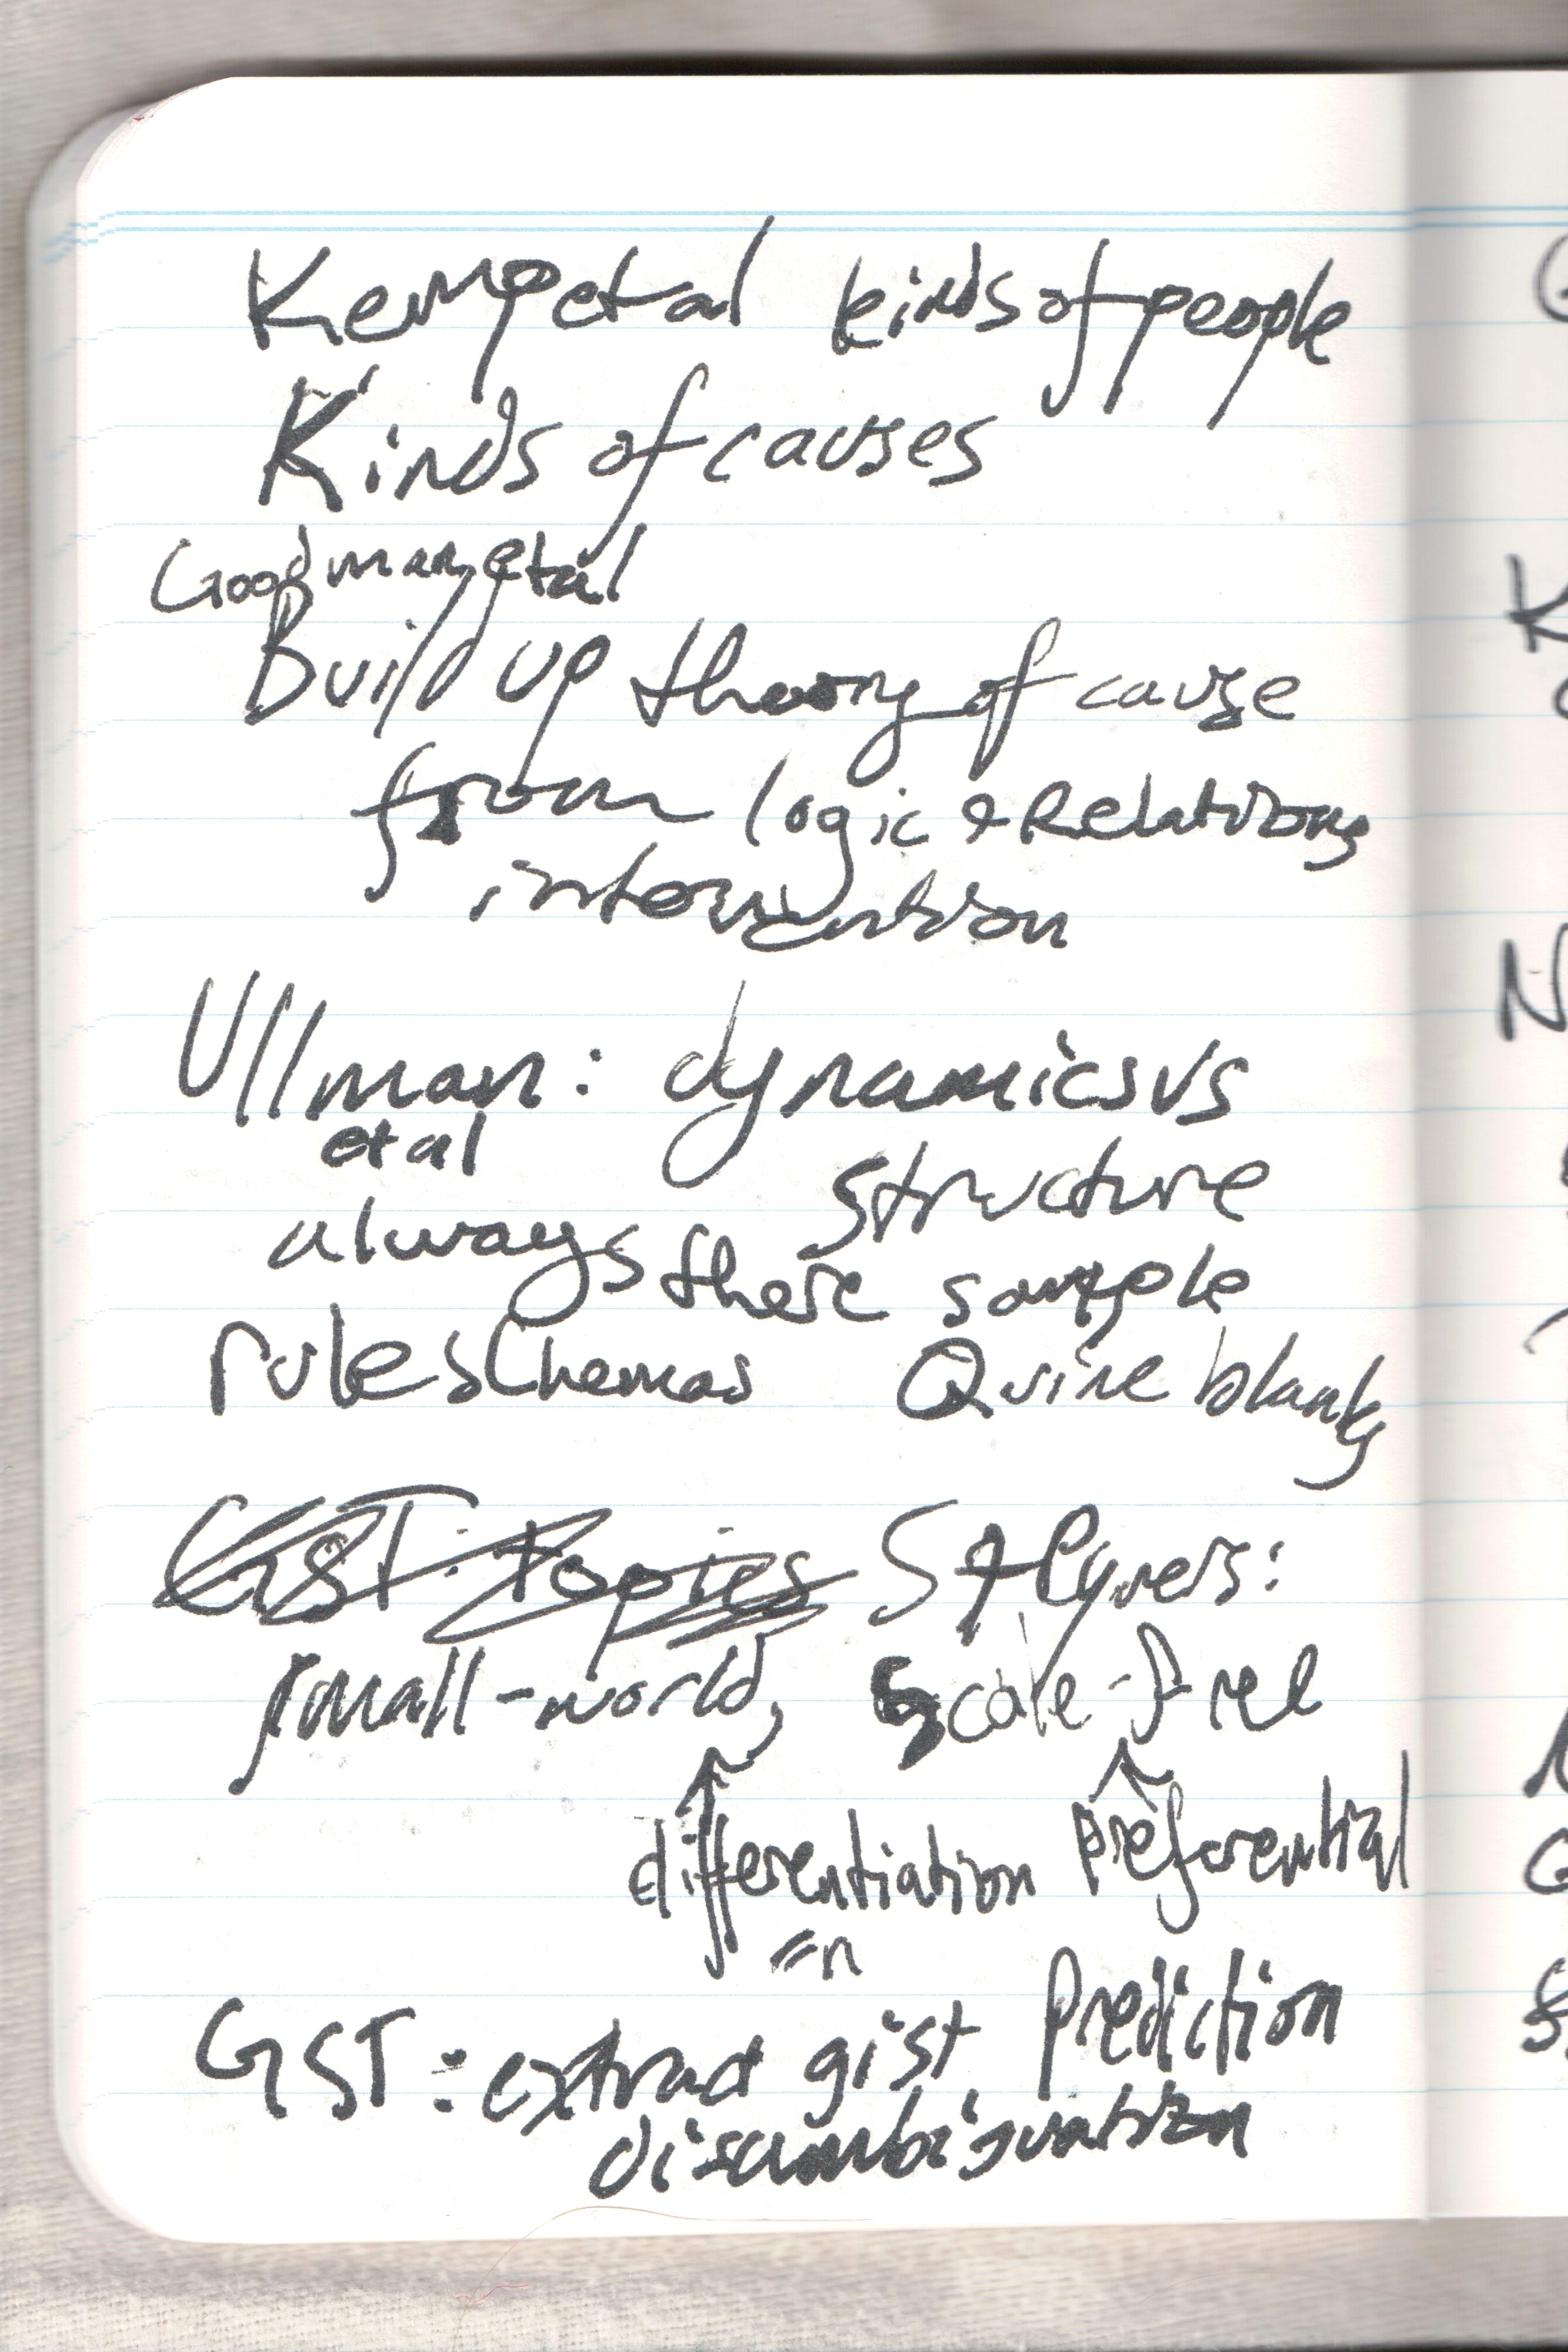 Kemp et al kinds of people
Kinds of causes
Goodman et al
Build up theory of cause
from logic & Relations
intervention
Ullman: dynamics vs
et al structure
always there sample
rule schemas Quine blanks
GST: topics S &
small-world, scale-free
differentiation preferential
= n
GST: extract gist prediction
disambiguation